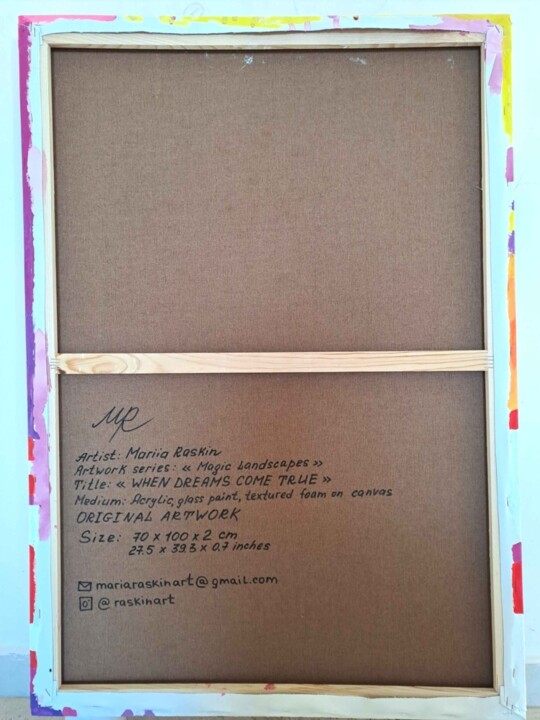 MR
Artist: Mariia Raskin
Artwork series: « Magic Landscapes »
Title: « WHEN DREAMS COME TRUE »
Medium: Acrylic, glass paint, textured foam on canvas
ORIGINAL ARTWORK
Size: 70 x 100 x 2 cm
27.5 x 39.3 x 0.7 inches
mariaraskinart@gmail.com
@raskinart